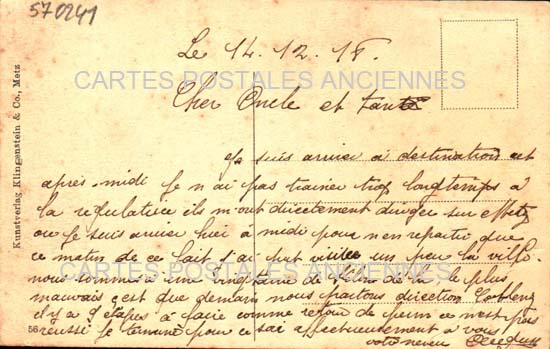 570241
Le 14.12.18.
CARTES POSTALES ANCIENNES
Cher Oncle et tante
Kunstverlag Klingenstein & Co., Metz
Je suis arrivé à destination cet
après-midi je n'ai pas trainer trop longtemps à
la régulatrice ils m'ont directement diriger sur Metz
ou je suis arrivé hier à midi pour n'en repartir que
ce matin de ce fait j'ai put visiter un peu la ville.
CARTES POSTALES ANCIENNES
nous sommes à une vingtaine de de la, le plus
mauvais c'est que demain nous partons direction Coblenz
il y a 9 étapes à faire comme retour de perm ce n'est pas
56
réussi je termine pour ce soir affectueusement à vous
votre neveu